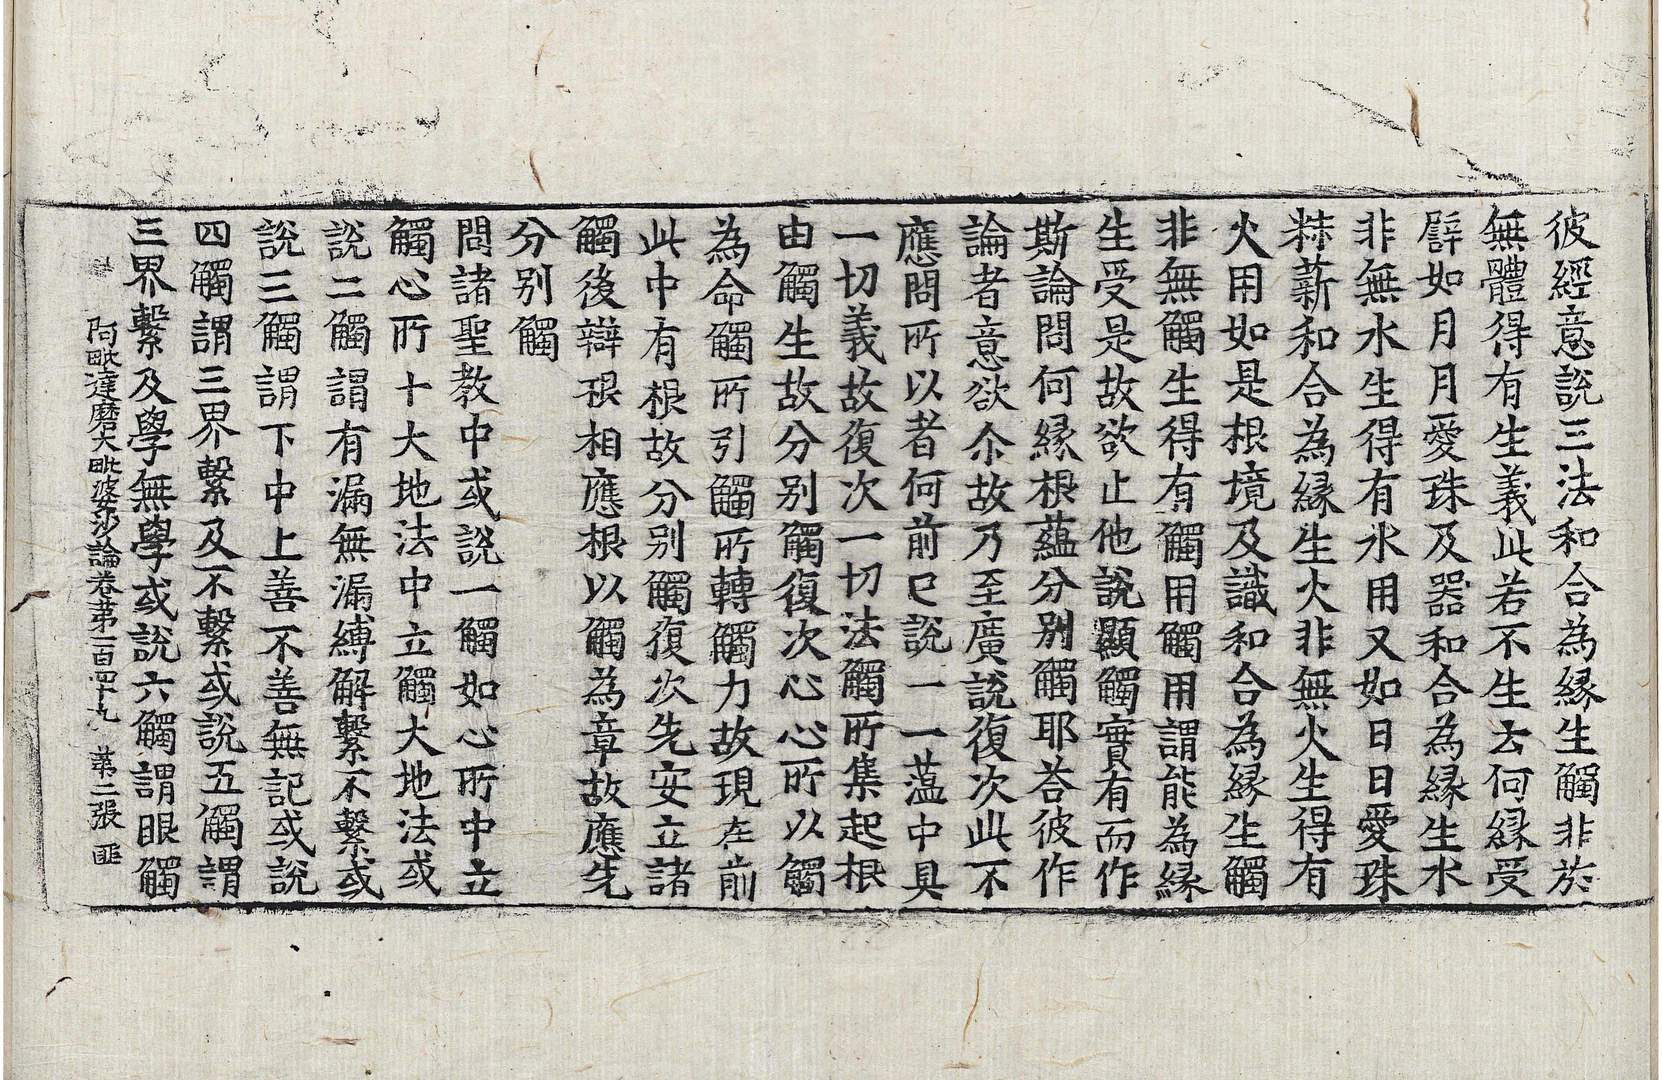 彼經意說三法和合為緣生觸非於
無體得有生義此若不生云何緣受
譬如月月愛珠及器和合為緣生水
非無水生得有水用又如日日愛珠
𦶟薪和合為緣生火非無火生得有
火用如是根境及識和合為緣生觸
非無觸生得有觸用觸用謂能為緣
生受是故欲止他說顯觸實有而作
斯論問何緣根蘊分別觸耶荅彼作
論者意欲尒故乃至廣說復次此不
應問所以者何前已說一一蕰中具
一切義故復次一切法觸所集起根
由觸生故分別觸復次心心所以觸
為命觸所引觸所轉觸力故現在前
此中有根故分別觸復次先安立諸
觸後辯根相應根以觸為章故應先
分別觸
問諸聖教中或說一觸如心所中立
觸心所十大地法中立觸大地法或
說二觸謂有漏無漏縛解繫不繫或
說三觸謂下中上善不善無記或說
四觸謂三界繫及不繫或說五觸謂
三界繫及學無學或說六觸謂眼觸
阿毗達磨大毗婆沙論卷苐一百四十九 苐二張 匪